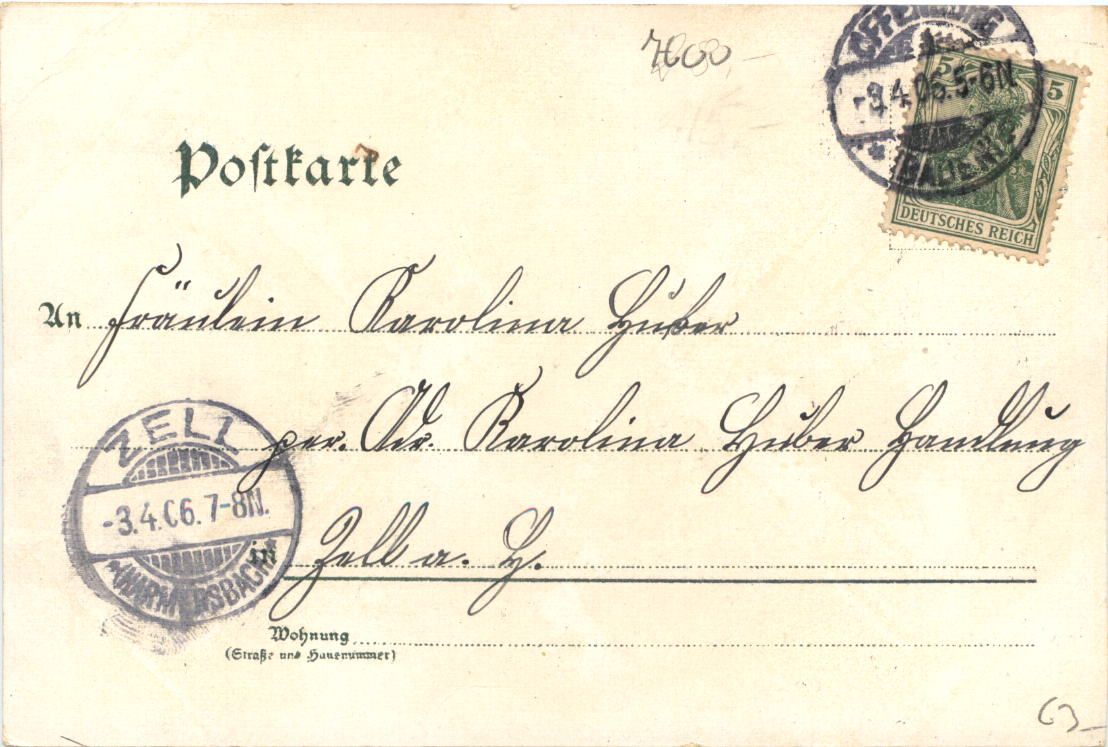 7600,-
OFFENBURG
-3.4.06.5-6N
* (BADEN) *
5 5
DEUTSCHES REICH
Postkarte
An Fräulein Karolina Huber
per. Adr. Karolina Huber Handlung
ZELL
-3.4.06.7-8N.
*HARMERSBACH*
in Zell a. H.
Wohnung
(Straße und Hausnummer)